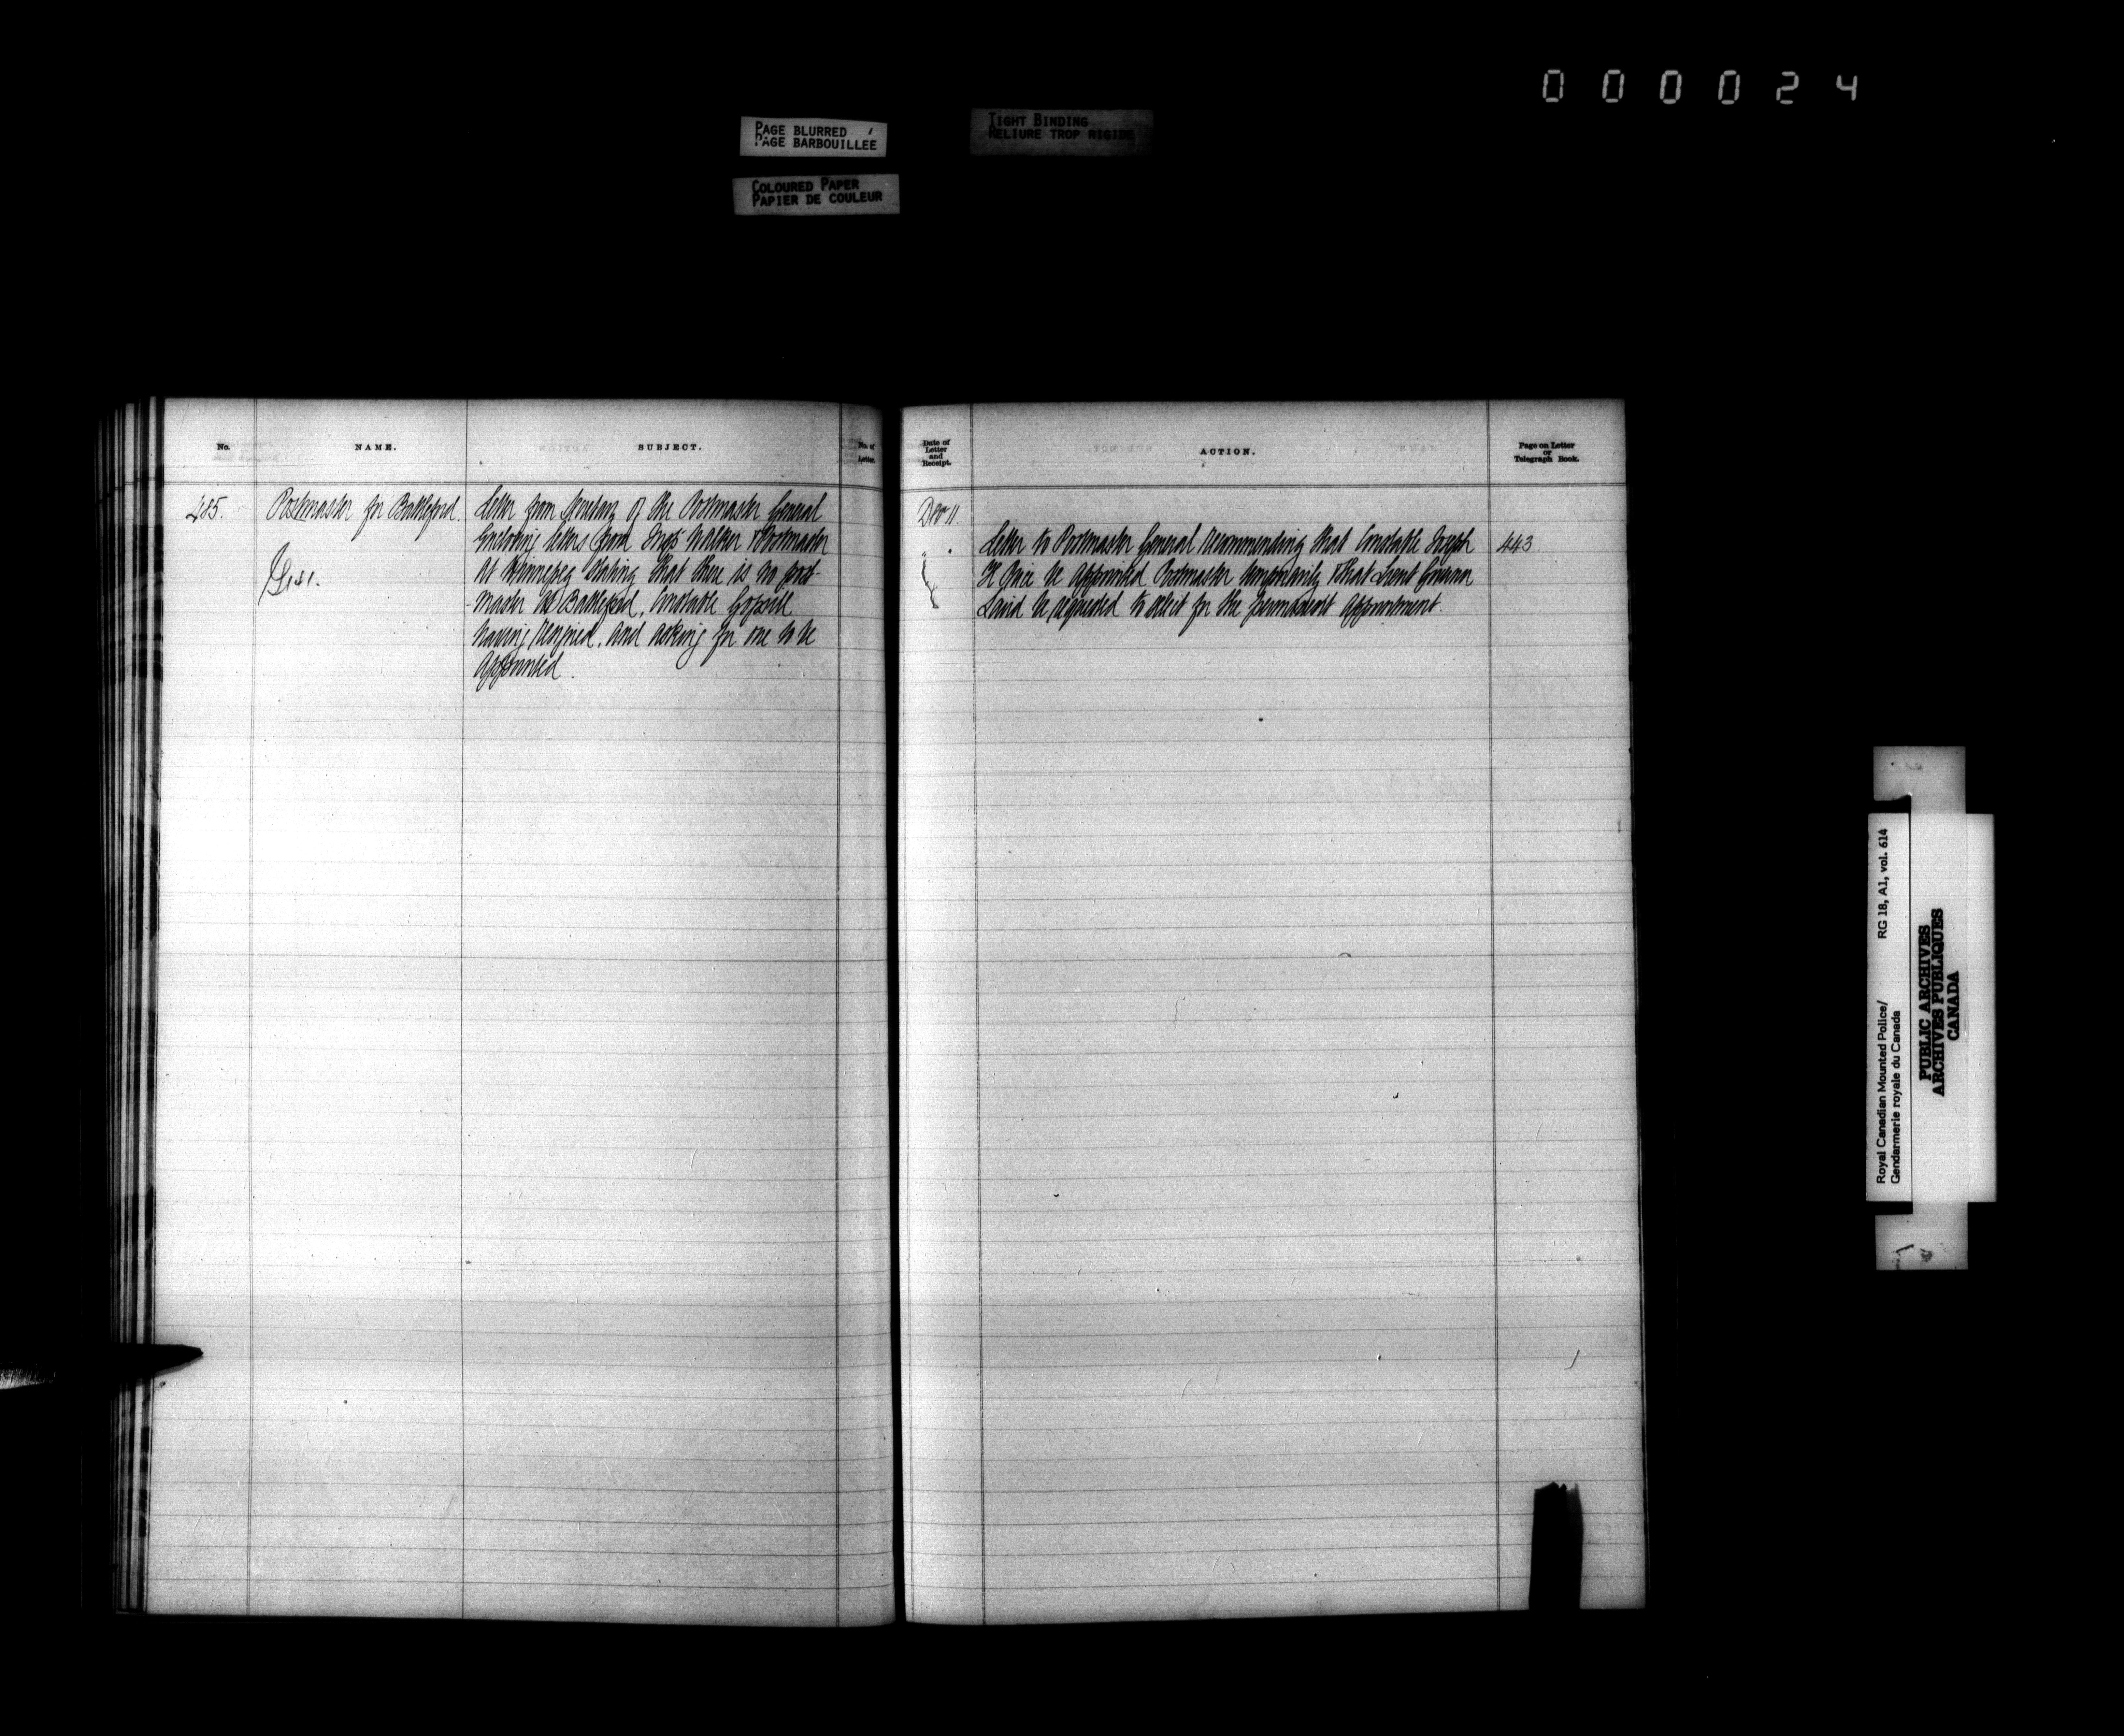 0 0 0 0 2 4
PAGE BLURRED
PAGE BARBOUILLÉE
TIGHT BINDING
RELIURE TROP RIGIDE
COLOURED PAPER
PAPIER DE COULEUR
No.
NAME.
SUBJECT.
No. of
Letter.
485.
Postmaster for Battleford.
Letter from Secretary of the Postmaster General
Enclosing letters from Insp Walker & Postmaster
at Winnepeg stating that there is no post-
-master at Battleford, Constable Gopsill
having resigned, and asking for one to be
appointed.
Date of
Letter
and
Receipt.
ACTION.
Page on Letter
or
Telegraph Book.
Dec 11.
Letter to Postmaster General recommending that Constable Joseph
H Price be appointed Postmaster temporarily & that Lieut Governor
Laird be requested to select for the permanent appointment.
443
Royal Canadian Mounted Police/
Gendarmerie royale du Canada
RG 18, A1, vol. 614
PUBLIC ARCHIVES
ARCHIVES PUBLIQUES
CANADA